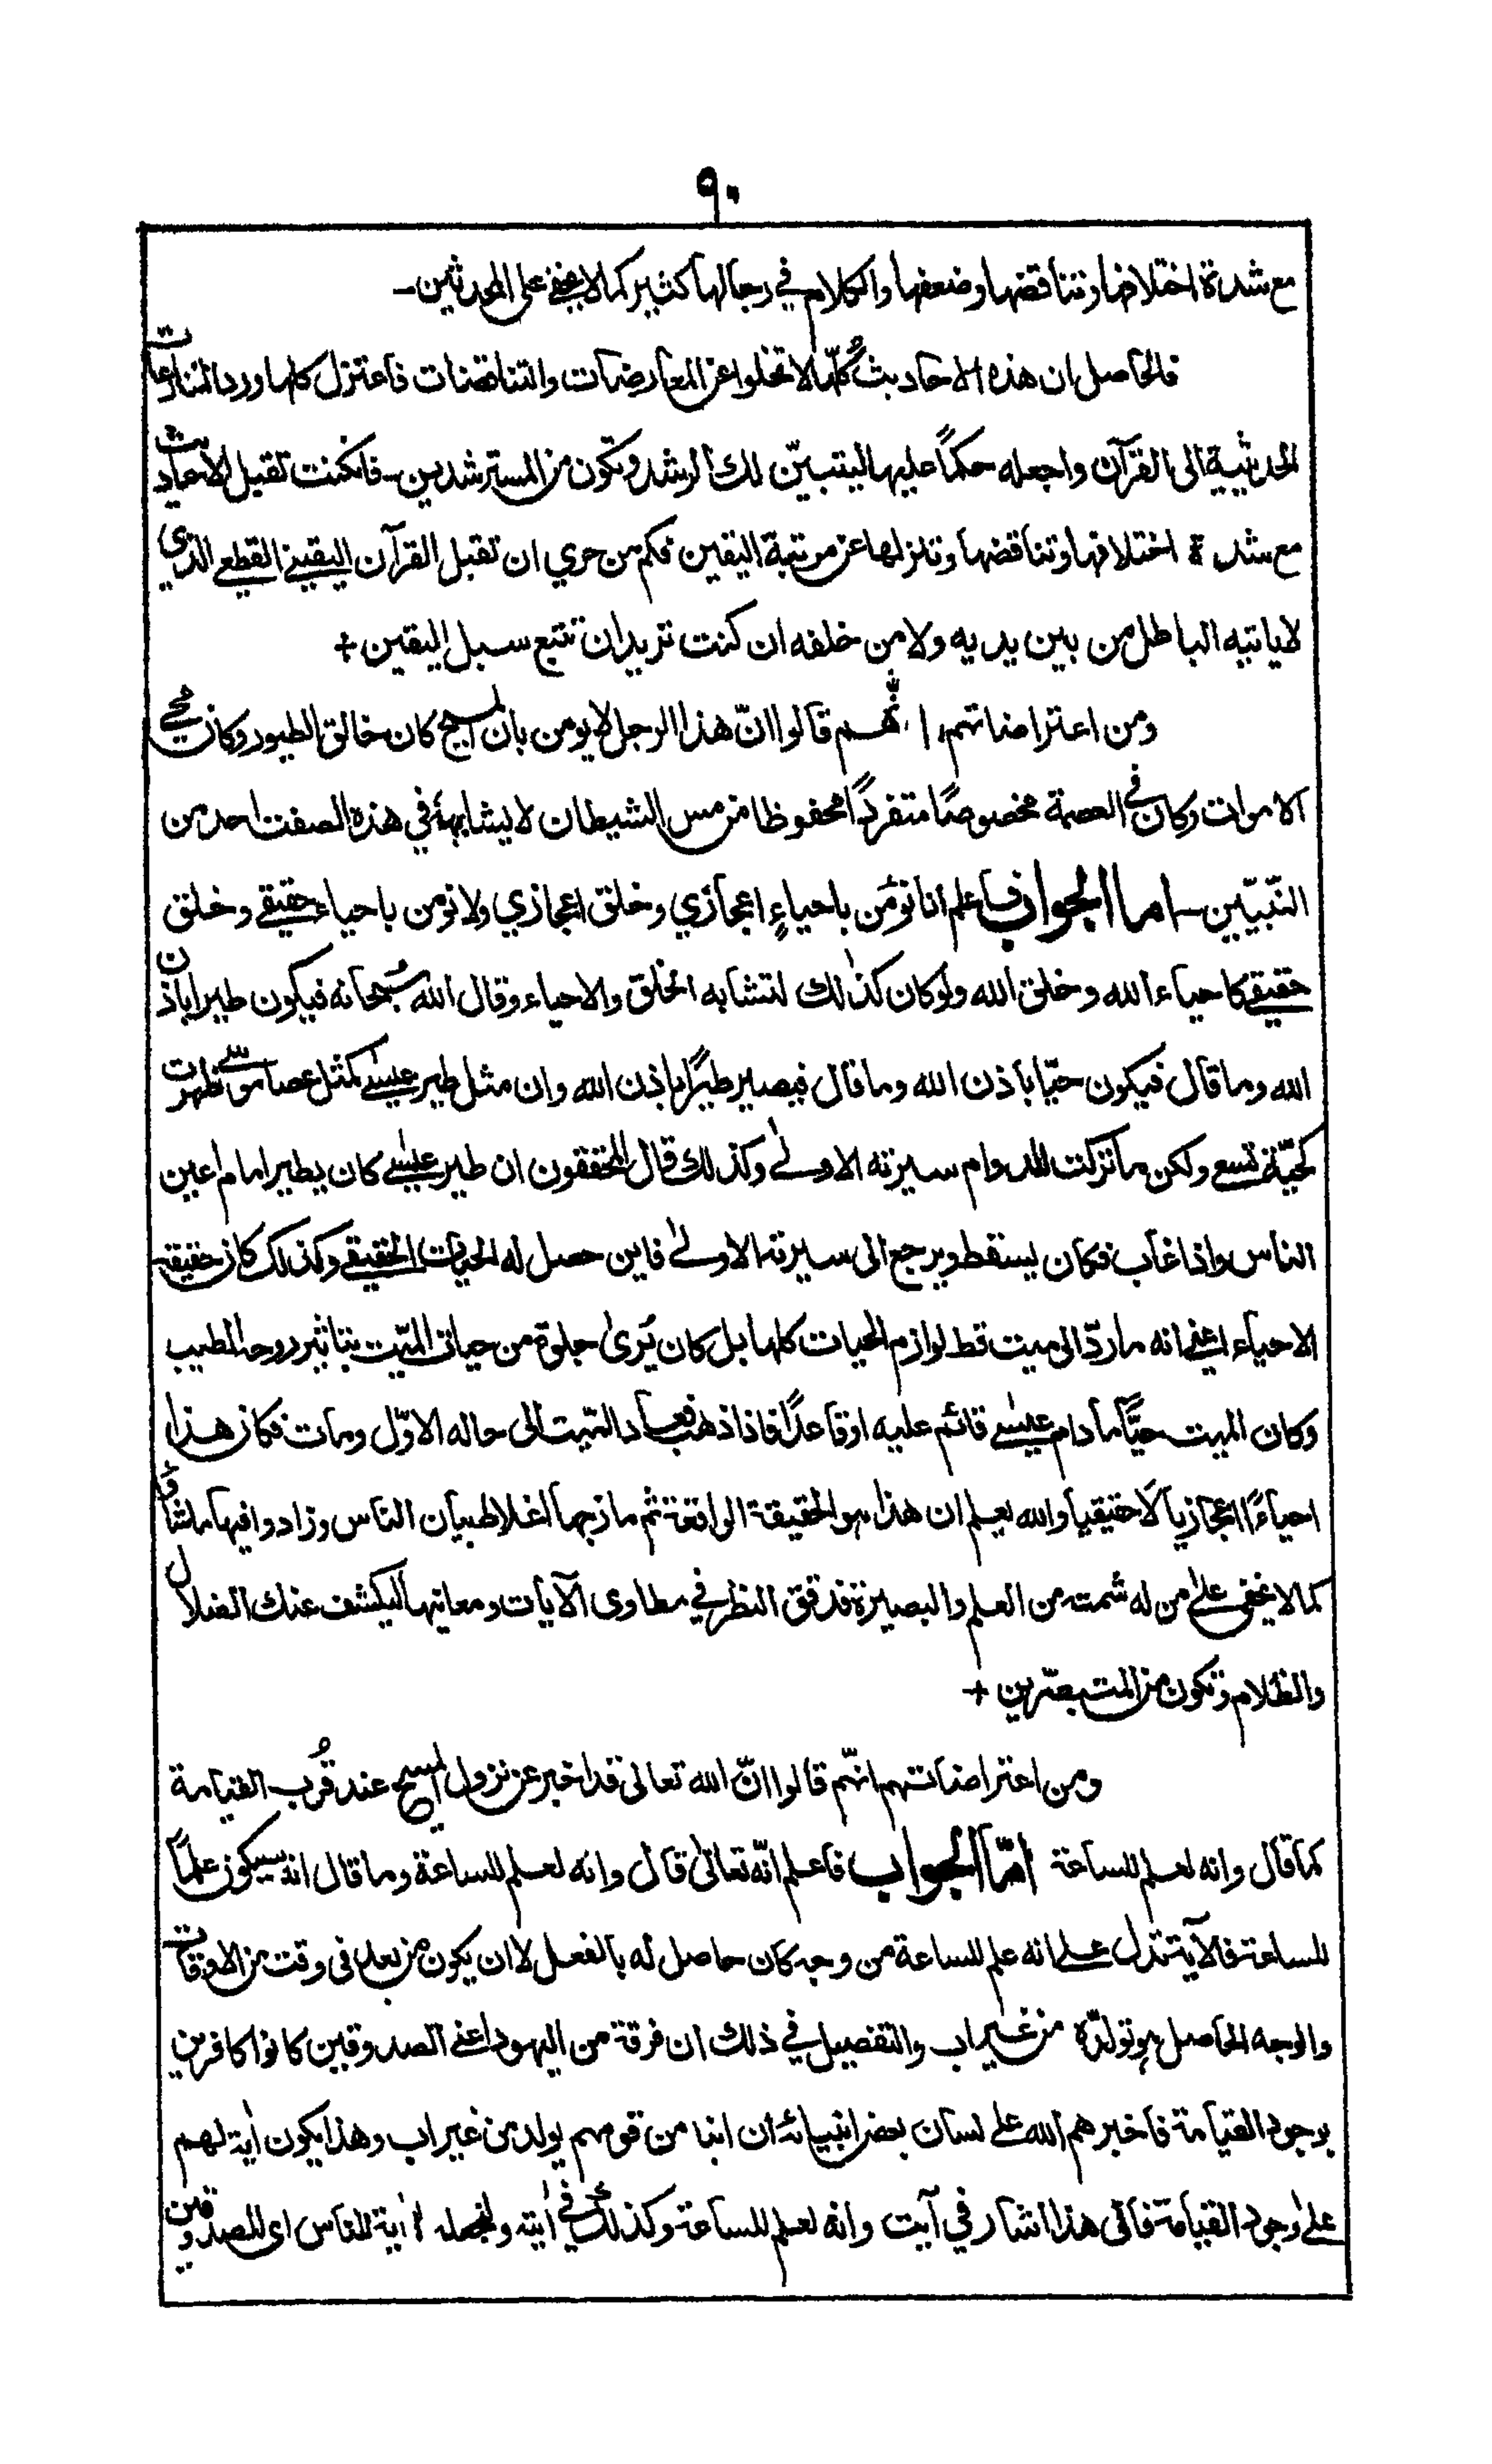 ٩٠
مع شدة اختلافها وتناقضها وضعفها والكلام في رجالها كثير كما لا يخفى على المحدثين—
فالحاصل ان هذه الاحاديث كُلّها لا تخلوا عن المعارضات والتناقضات فاعتزل كلها ورد التنازعات
الحديثية الى القرآن واجعله حكمًا عليها ليتبيّن لك الرشد وتكون من المسترشدين— فان كنت تقبل الاحاديث
مع شدة اختلافها وتناقضها وتنزلها عن مرتبة اليقين فكم من حري ان تقبل القرآن اليقيني القطعي الذي
لا ياتيه الباطل من بين يديه ولا من خلفه ان كنت تريد ان تتبع سبل اليقين +
ومن اعتراضاتهم انهم قالوا انّ هذا الرجل لا يومن بان المسيح كان خالق الطيور وكان محيي
الاموات وكان في العصمة مخصوصًا متفردًا محفوظا من مس الشيطان لا يشابهه في هذه الصفت احد من
النّبيّين— اما الجواب فاعلم انا نؤمن باحياءٍ اعجازي وخلق اعجازي ولا نومن باحياء حقيقي وخلق
حقيقي كاحياء الله وخلق الله ولو كان كذالك لتشابه الخلق والاحياء وقال الله سُبحانه فيكون طيرا باذن
الله وما قال فيكون حيّا باذن الله وما قال فيصير طيرًا باذن الله وان مثل طير عيسى كمثل عصا موسى ظهرت
كحيّة تسعى ولكن ما تركت للدوام سيرته الاولىٰ وكذلك قال المحققون ان طير عيسىٰ كان يطير امام اعين
الناس واذا غاب فكان يسقط ويرجع الى سيرته الاولىٰ فاين حصل له الحيات الحقيقي وكذلك كان حقيقة
الاحياء اعني انه ما ردّ الى ميت قط لوازم الحيات كلها بل كان يُرىٰ جلوة من حيات الميّت بتاثير روحه الطيب
وكان الميت حيًّا ما دام عيسىٰ قائم عليه او قاعدًا فاذا ذهب فعاد الميّت الى حاله الاوّل ومات فكان هذا
احياءً اعجازيا لا حقيقيا والله يعلم ان هذا هو الحقيقة الواقعة ثم مازجها اغلاط بيان الناس وزادوا فيها ما شاؤا
كما لا يخفى علىٰ من له شمت من العلم والبصيرة فدقق النظر في مطاوى الآيات ومعانيها ليكشف عنك الضلال
والظلام وتكون من المتبصّرين +
ومن اعتراضاتهم انهّم قالوا انّ الله تعالى قد اخبر عن نزول المسيح عند قُرب القيامة
كما قال وانه لعلم للساعة امّا الجواب فاعلم انّه تعالىٰ قال وانه لعلم للساعة وما قال انه سيكون علماً
للساعة فالآية تدل على انه علم للساعة من وجه كان حاصل له بالفعل لا ان يكون من بعد فى وقت من الاوقات
والوجه الحاصل هو تولّده من غير اب والتفصيل في ذلك ان فرقة من اليهود اعنى الصدوقين كانوا كافرين
بوجود القيامة فاخبرهم الله على لسان بعض انبيائه ان ابنا من قومهم يولد من غير اب وهذا يكون اٰية لهم
علىٰ وجود القيامة فالى هذا اشار في آيت وانه لعلم للساعة وكذلك في اٰيته ولنجعله اٰية للناس اى للصدوقين